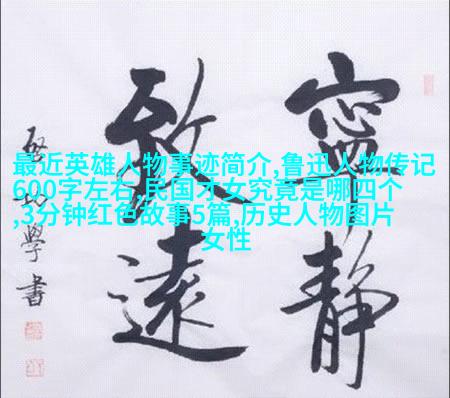 寧靜
致遠
學書
最近英雄人物事迹简介,鲁迅人物传记
600字左右,民国才女究竟是哪四个
,3分钟红色故事5篇,历史人物图片
女性